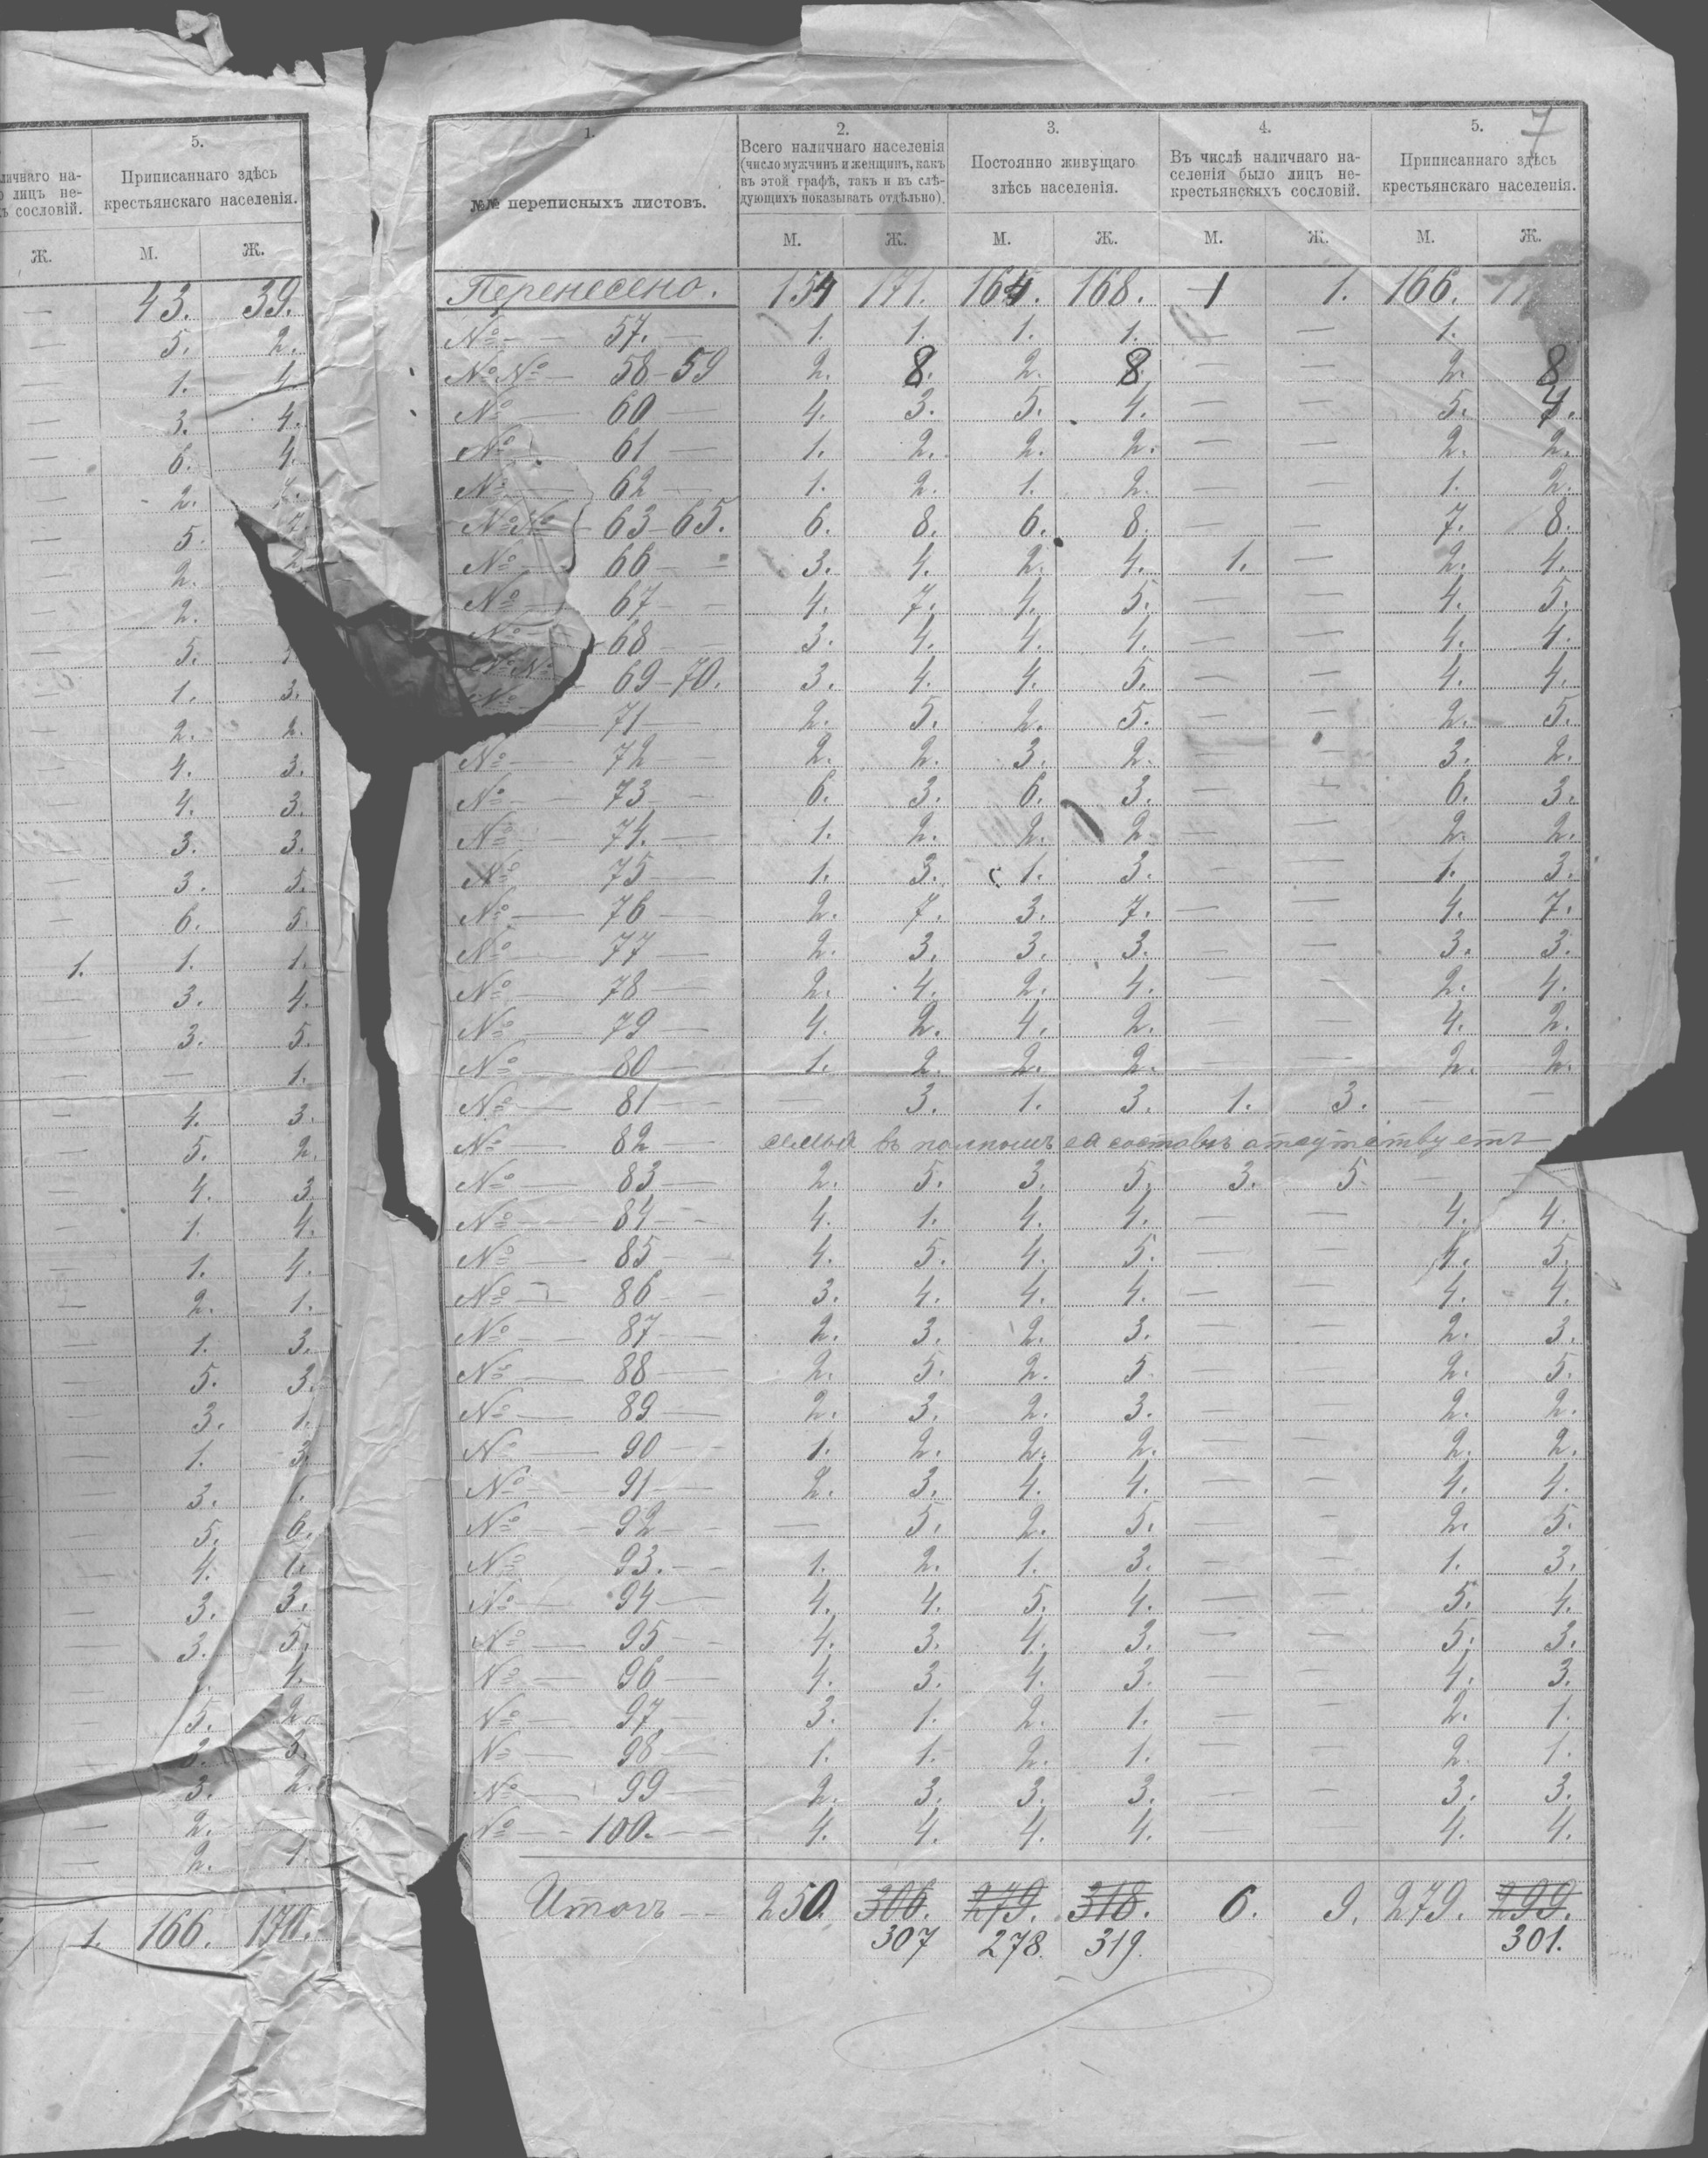 5.
Приписаннаго здѣсь
крестьянскаго населенія.
Ж. М. Ж.
— 43. 39.
— 5. 2.
— 1. 4.
— 3. 4.
— 6. 4.
— 2. 7.
— 5.
— 2.
— 2.
— 5.
— 1. 3.
— 2. 2.
— 4. 3.
— 4. 3.
— 3. 3.
— 3. 5.
— 6. 5.
1. 1. 1.
— 3. 4.
— 3. 5.
— — 1.
— 4. 3.
— 5. 2.
— 4. 3.
— 1. 4.
— 1. 4.
— 2. 1.
— 1. 3.
— 5. 3.
— 3. 1.
— 1. 3.
— 3.
— 5. 6.
— 4. 1.
— 3. 3.
— 3. 5.
— 4.
— 5. 2.
— 3. 3.
— 3. 2.
— 2.
— 2. 1.
1. 166. 170.
7
1. 2. 3. 4. 5.
№№ переписныхъ листовъ.
Всего наличнаго населенія
(число мужчинъ и женщинъ, какъ
въ этой графѣ, такъ и въ слѣ-
дующихъ показывать отдѣльно).
Постоянно живущаго
здѣсь населенія.
Въ числѣ наличнаго на-
селенія было лицъ не-
крестьянскихъ сословій.
Приписаннаго здѣсь
крестьянскаго населенія.
М. Ж. М. Ж. М. Ж. М. Ж.
Перенесено. 154 171. 164. 168. 1 1. 166.
№ — 57. — 1. 1. 1. 1. — — 1.
№№ — 58-59 2. 8. 2. 8. — — 2. 8
№ — 60 — 4. 3. 5. 4. — — 5. 4.
№ — 61 — 1. 2. 2. 2. — — 2. 2.
№ — 62 — 1. 2. 1. 2. — — 1. 2.
№№ — 63-65. 6. 8. 6. 8. — — 7. 8.
№ — 66 — 3. 4. 2. 4. 1. — 2. 4.
№ — 67 — 4. 7. 4. 5. — — 4. 5.
№ — 68 — 3. 4. 4. 4. — — 4. 4.
№№ 69-70. 3. 4. 4. 5. — — 4. 4.
№ 71 — 2. 5. 2. 5. — — 2. 5.
№ — 72 — 2. 2. 3. 2. — — 3. 2.
№ — 73 — 6. 3. 6. 3. — — 6. 3.
№ — 74. — 1. 2. 2. 2. — — 2. 2.
№ 75 — 1. 3. 1. 3. — — 1. 3.
№ — 76 — 2. 7. 3. 7. — — 4. 7.
№ — 77 — 2. 3. 3. 3. — — 3. 3.
№ — 78 — 2. 4. 2. 4. — — 2. 4.
№ — 79 — 4. 2. 4. 2. — — 4. 2.
№ — 80 — 1. 2. 2. 2. — — 2. 2.
№ — 81 — — 3. 1. 3. 1. 3. — —
№ — 82 — семья въ полномъ ея составѣ отсутствуетъ
№ — 83 — 2. 5. 3. 5. 3. 5. — —
№ — 84 — 4. 1. 4. 4. — — 4. 4.
№ — 85 — 4. 5. 4. 5. — — 4. 5.
№ — 86 — 3. 4. 4. 4. — — 4. 4.
№ — 87 — 2. 3. 2. 3. — — 2. 3.
№ — 88 — 2. 5. 2. 5 — — 2. 5.
№ — 89 — 2. 3. 2. 3. — — 2. 2.
№ — 90 — 1. 2. 2. 2. — — 2. 2.
№ — 91 — 2. 3. 4. 4. — — 4. 4.
№ — 92 — — 5. 2. 5. — — 2. 5.
№ 93. — 1. 2. 1. 3. — — 1. 3.
№ — 94 — 4. 4. 5. 4. — — 5. 4.
№ — 95 — 4. 3. 4. 3. — — 5. 3.
№ — 96 — 4. 3. 4. 3. — — 4. 3.
№ — 97 3. 1. 2. 1. — — 2. 1.
№ — 98 — 1. 1. 2. 1. — — 2. 1.
№ — 99 — 2. 3. 3. 3. — — 3. 3.
№ — 100. — 4. 4. 4. 4. — — 4. 4.
Итогъ — 250. 306. 279. 318. 6. 9. 279. 299.
307 278. 319. 301.